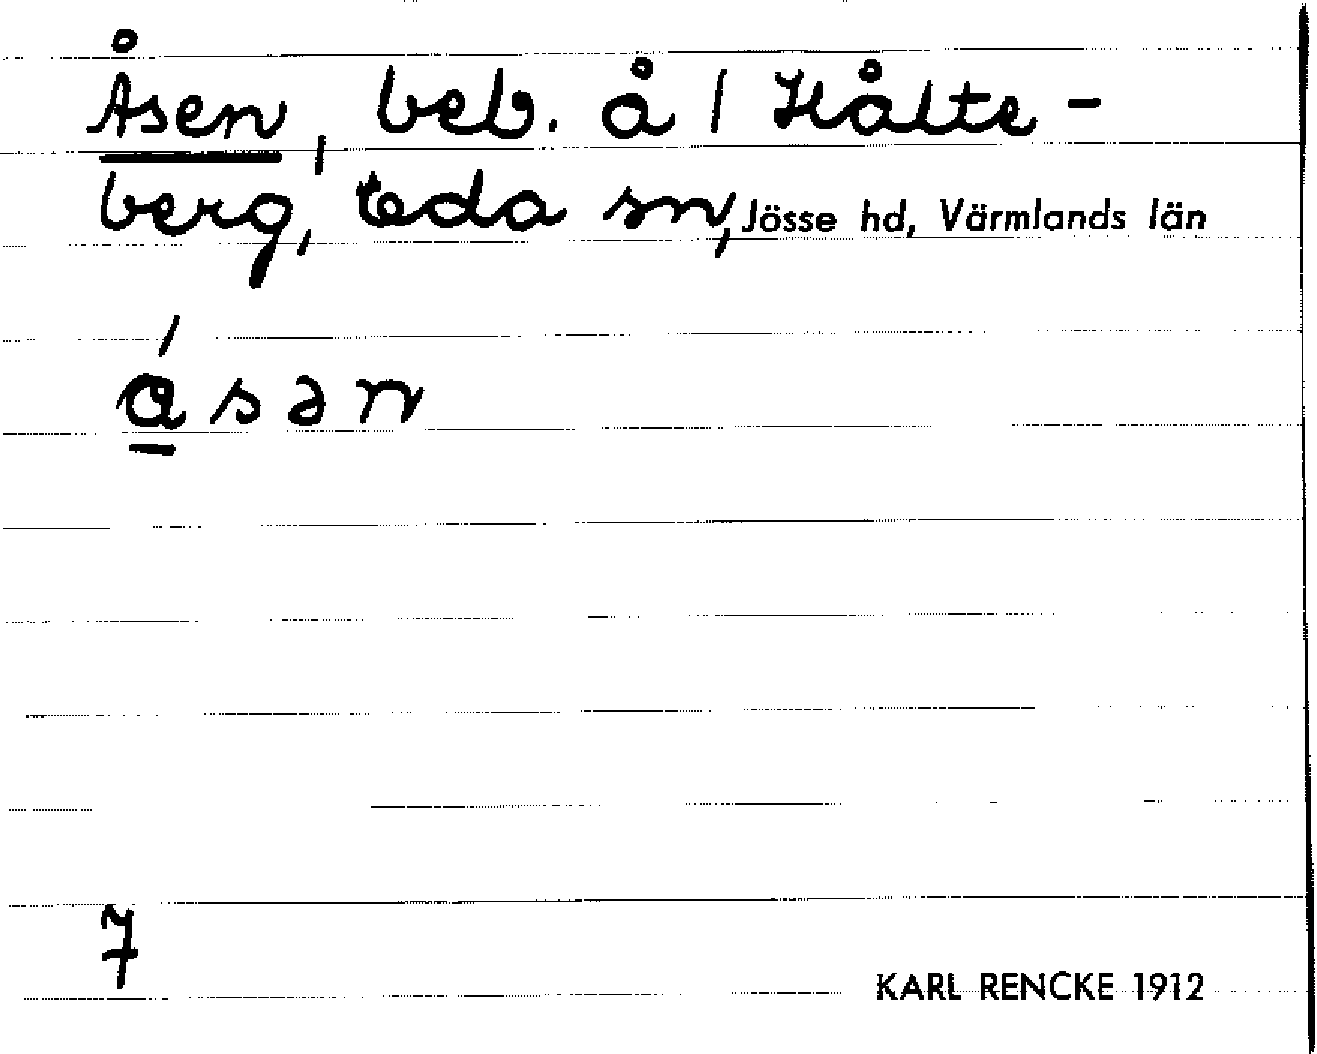 Åsen, beb. å / Hålte-
berg, Eda sn, Jösse hd, Värmlands län
á̲sən
7
KARL RENCKE 1912